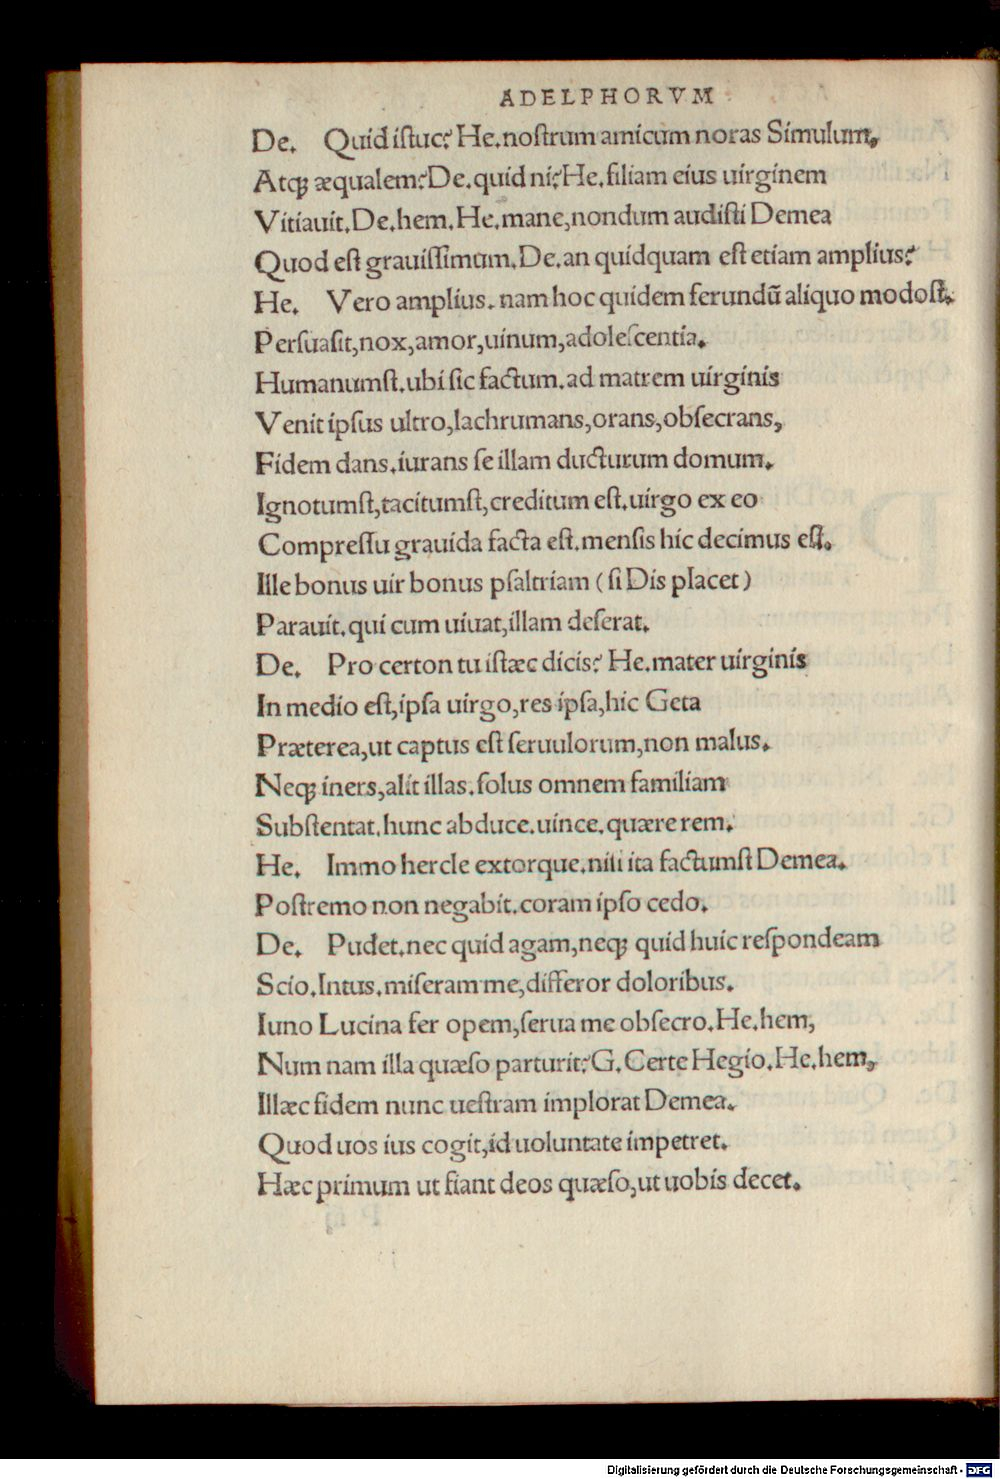 ADELPHORVM
De. Quid istuc? He. nostrum amicum noras Simulum,
Atq; æqualem? De. quid ni? He. filiam eius uirginem
Vitiauit. De. hem. He. mane, nondum audisti Demea
Quod est grauissimum. De. an quidquam est etiam amplius?
He. Vero amplius. nam hoc quidem ferundū aliquo modost.
Persuasit, nox, amor, uinum, adolescentia.
Humanumst. ubi sic factum. ad matrem uirginis
Venit ipsus ultro, lachrumans, orans, obsecrans,
Fidem dans. iurans se illam ducturum domum.
Ignotumst, tacitumst, creditum est. uirgo ex eo
Compressu grauida facta est. mensis hic decimus est.
Ille bonus uir bonus psaltriam (si Dis placet)
Parauit. qui cum uiuat, illam deserat.
De. Pro certon tu istæc dicis? He. mater uirginis
In medio est, ipsa uirgo, res ipsa, hic Geta
Præterea, ut captus est seruulorum, non malus.
Neq; iners, alit illas. solus omnem familiam
Substentat. hunc abduce. uince. quære rem.
He. Immo hercle extorque. nisi ita factumst Demea.
Postremo non negabit. coram ipso cedo.
De. Pudet. nec quid agam, neq; quid huic respondeam
Scio. Intus. miseram me, differor doloribus.
Iuno Lucina fer opem, serua me obsecro. He. hem,
Num nam illa quæso parturit? G. Certe Hegio. He. hem,
Illæc fidem nunc uestram implorat Demea.
Quod uos ius cogit, id uoluntate impetret.
Hæc primum ut fiant deos quæso, ut uobis decet.
Digitalisierung gefördert durch die Deutsche Forschungsgemeinschaft - DFG